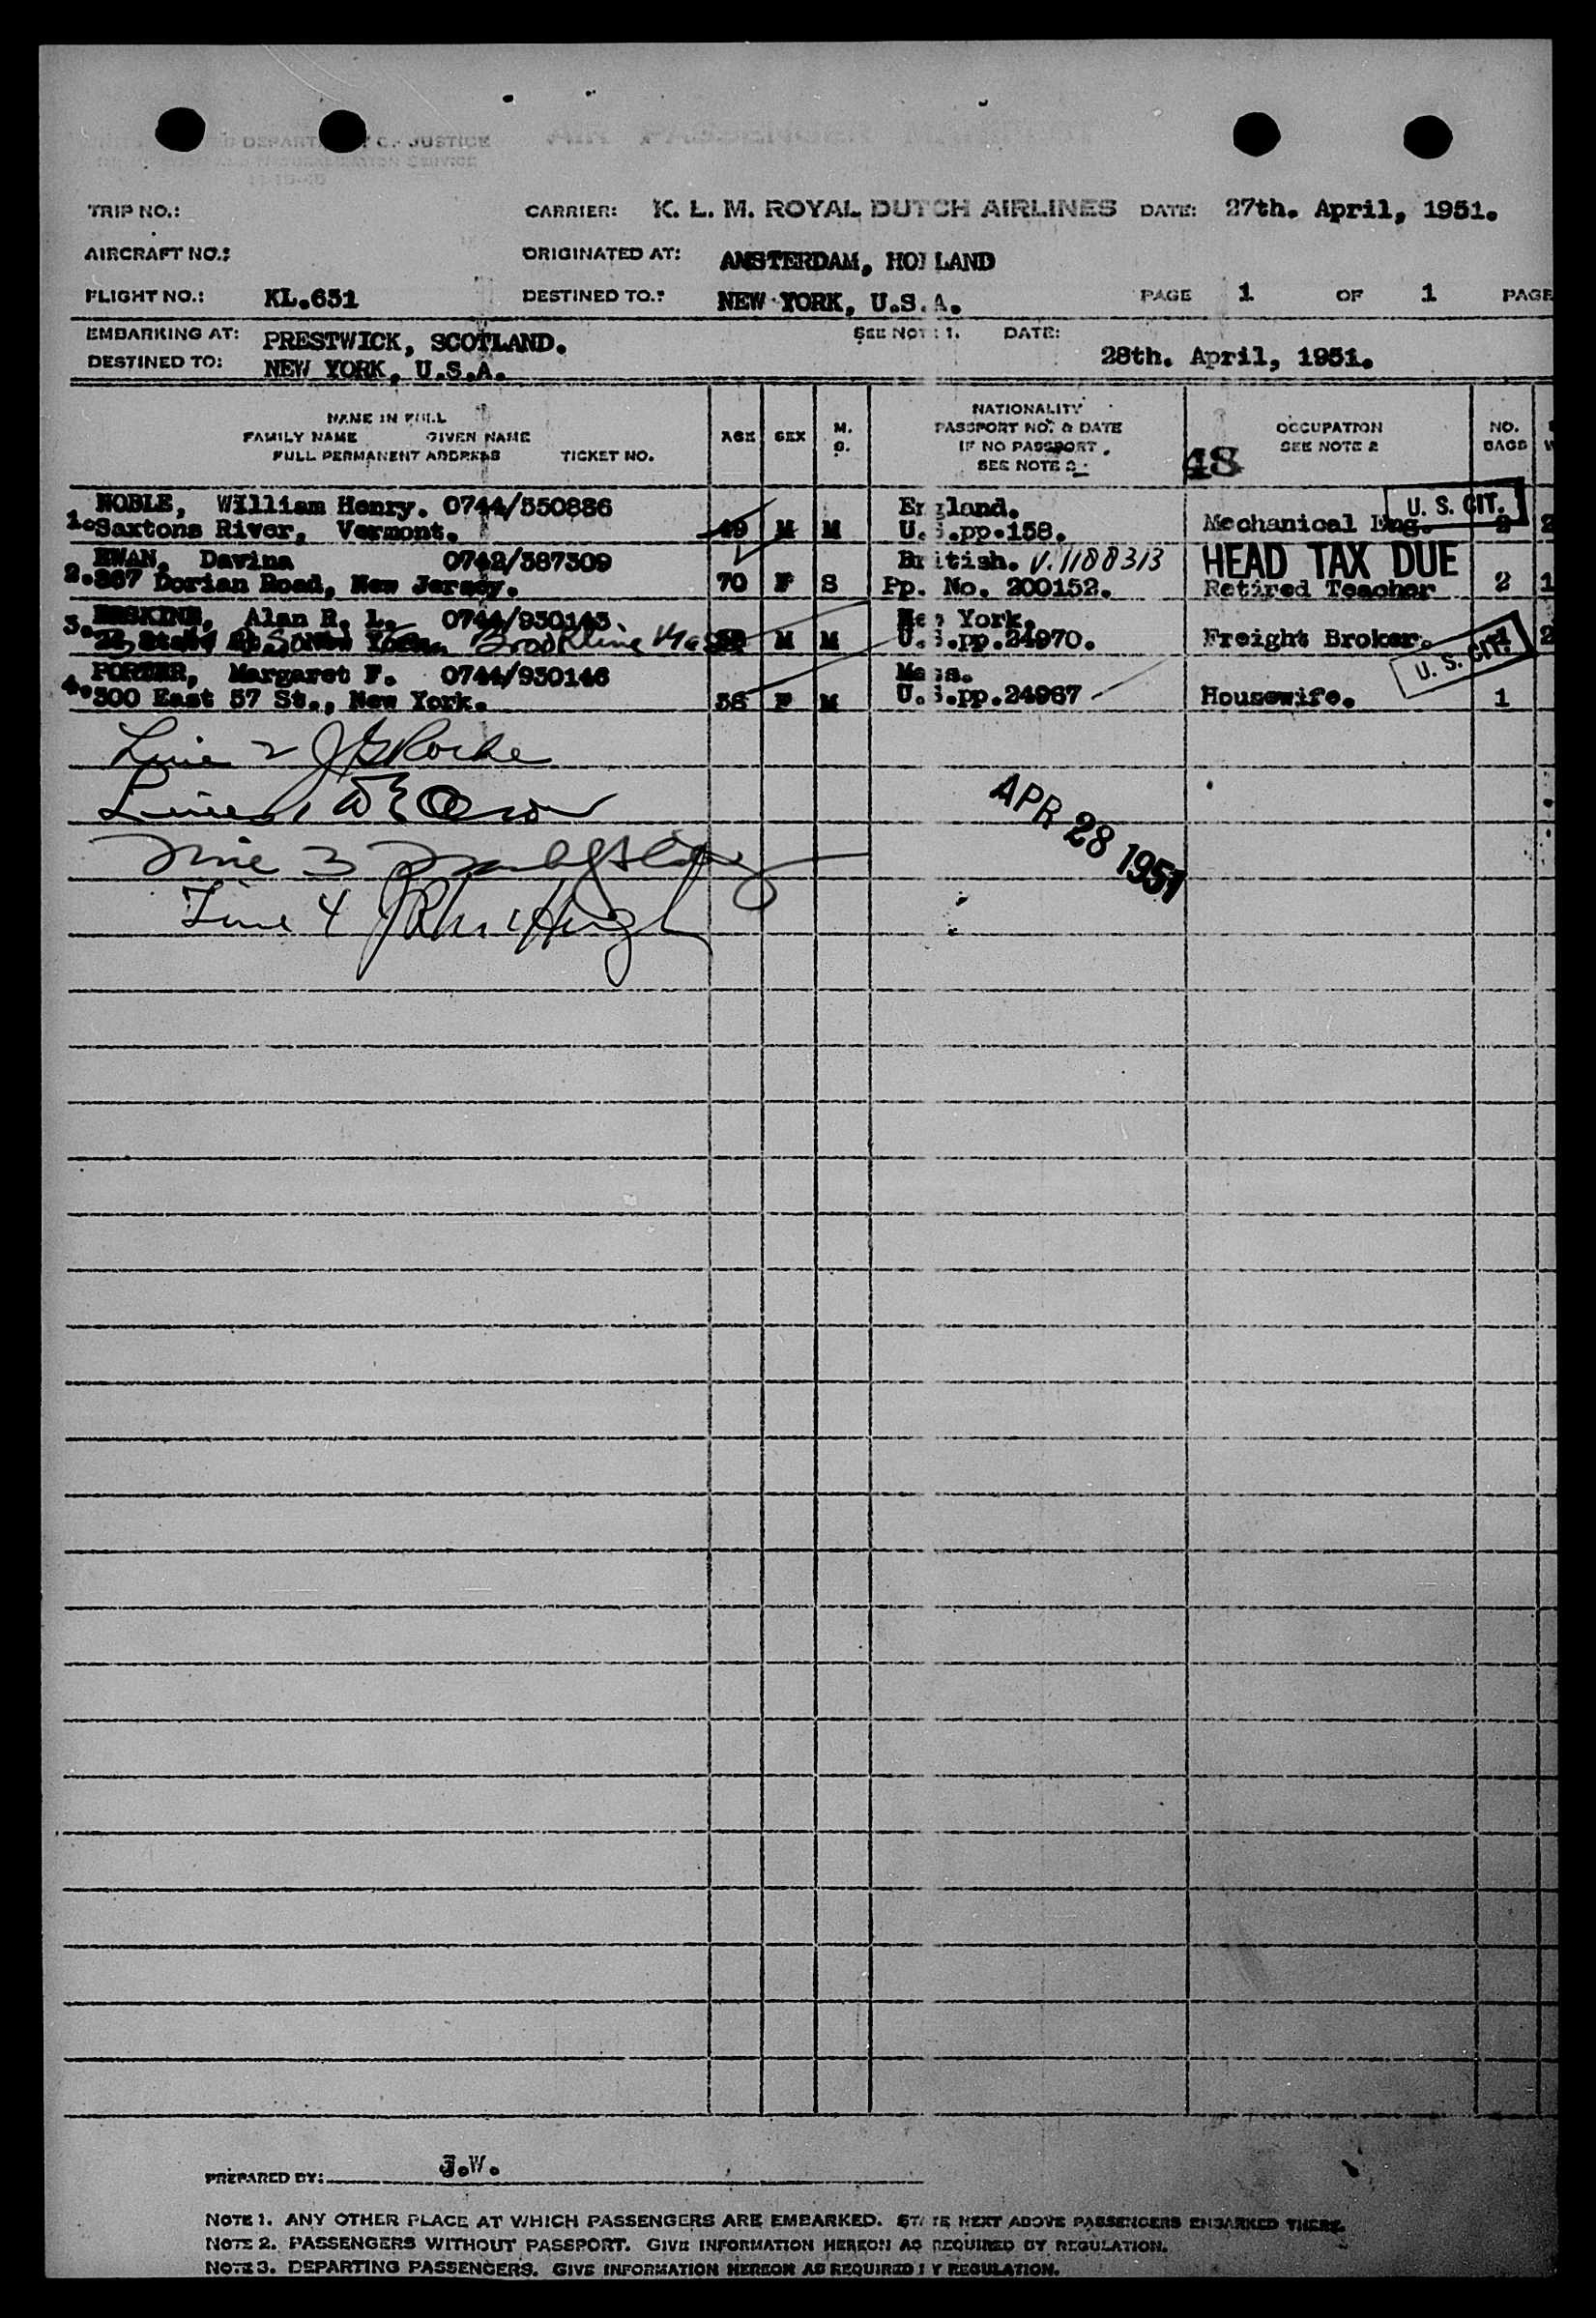 DEPARTMENT OF JUSTICE
AIR PASSENGER MANIFEST
TRIP NO.: CARRIER: K. L. M. ROYAL DUTCH AIRLINES DATE: 27th. April, 1951.
AIRCRAFT NO.: ORIGINATED AT: AMSTERDAM, HOLLAND
FLIGHT NO.: KL.651 DESTINED TO.: NEW YORK, U.S.A. PAGE 1 OF 1 PAGE
EMBARKING AT: PRESTWICK, SCOTLAND. SEE NOTE 1. DATE: 28th. April, 1951.
DESTINED TO: NEW YORK, U.S.A.
NAME IN FULL
FAMILY NAME GIVEN NAME
FULL PERMANENT ADDRESS TICKET NO.
AGE SEX M. S.
NATIONALITY
PASSPORT NO. & DATE
IF NO PASSPORT
SEE NOTE 2
OCCUPATION
SEE NOTE 2
48
NO. BAGS
NOBLE, William Henry. 0744/550886 England. U. S. CIT.
1. Saxtons River, Vermont. 49 M M U.S.pp.158. Mechanical Eng. 2 2
EWAN, Davina 0742/387309 British. V.1188313 HEAD TAX DUE
2. 867 Dorian Road, New Jersey. 70 F S Pp. No. 200152. Retired Teacher 2 1
ERSKINE, Alan R. L. 0744/930145. New York.
3. Brookline Mass M M U.S.pp.24970. Freight Broker. 1 2
PORTER, Margaret F. 0744/930146 Mass. U. S. CIT.
4. 300 East 57 St., New York. 56 F M U.S.pp.24967 Housewife. 1
Line 2 J G Roche
Line 1
Line 3
Line 4
APR 28 1951
PREPARED BY: J.W.
NOTE 1. ANY OTHER PLACE AT WHICH PASSENGERS ARE EMBARKED. STATE NEXT ABOVE PASSENGERS EMBARKED THERE.
NOTE 2. PASSENGERS WITHOUT PASSPORT. GIVE INFORMATION HEREON AS REQUIRED BY REGULATION.
NOTE 3. DEPARTING PASSENGERS. GIVE INFORMATION HEREON AS REQUIRED BY REGULATION.